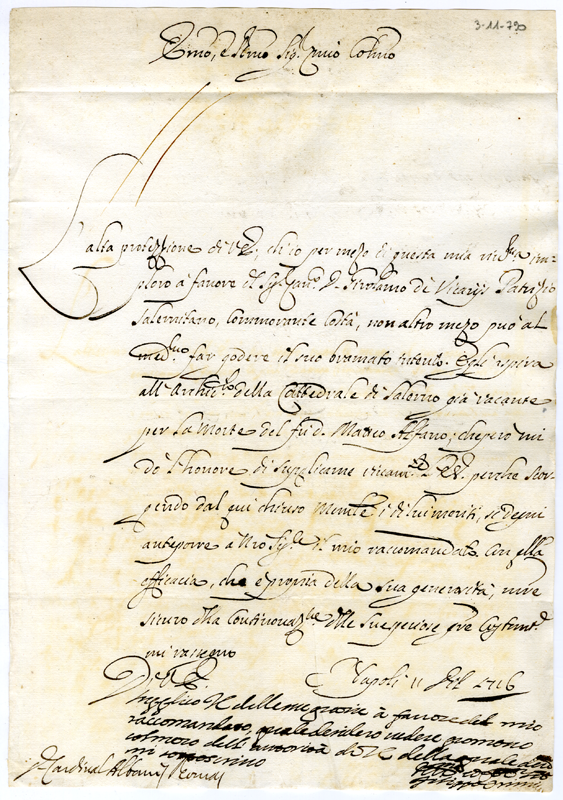 3-11-790
Emo, e Rmo Sig. mio Colmo
L'alta protezzione di VE, ch'io per mezo di questa mia im-
ploro à favore del Sig. Can.co D. Girolamo de Vicarijs Patrizio
Salernitano, Commorante Costà, non altro mezo può al
med.mo far godere il suo bramato intento. Egli aspira
all'Archid.to della Cattedrale di Salerno già vacante
per la Morte del fù d. Matteo Alfano; che però mi
dò l'honore di supplicarne VE. perche scor-
gendo dal qui chiuso Mem.le i di lui meriti, si degni
anteporre a Nro Sig.re il mio raccomandato con q.lla
efficacia, che è propria della sua generosità, mentre
sicuro della Continovaz.ne delle sue
mi rassegno
Di V.E.
Napoli 11 1716
supplico VE delle sue grazie à favore del mio
raccomandato, quale desidero vedere promosso
col mezo dell'autorità di VE della quale
mi
Cardinal Albani Roma